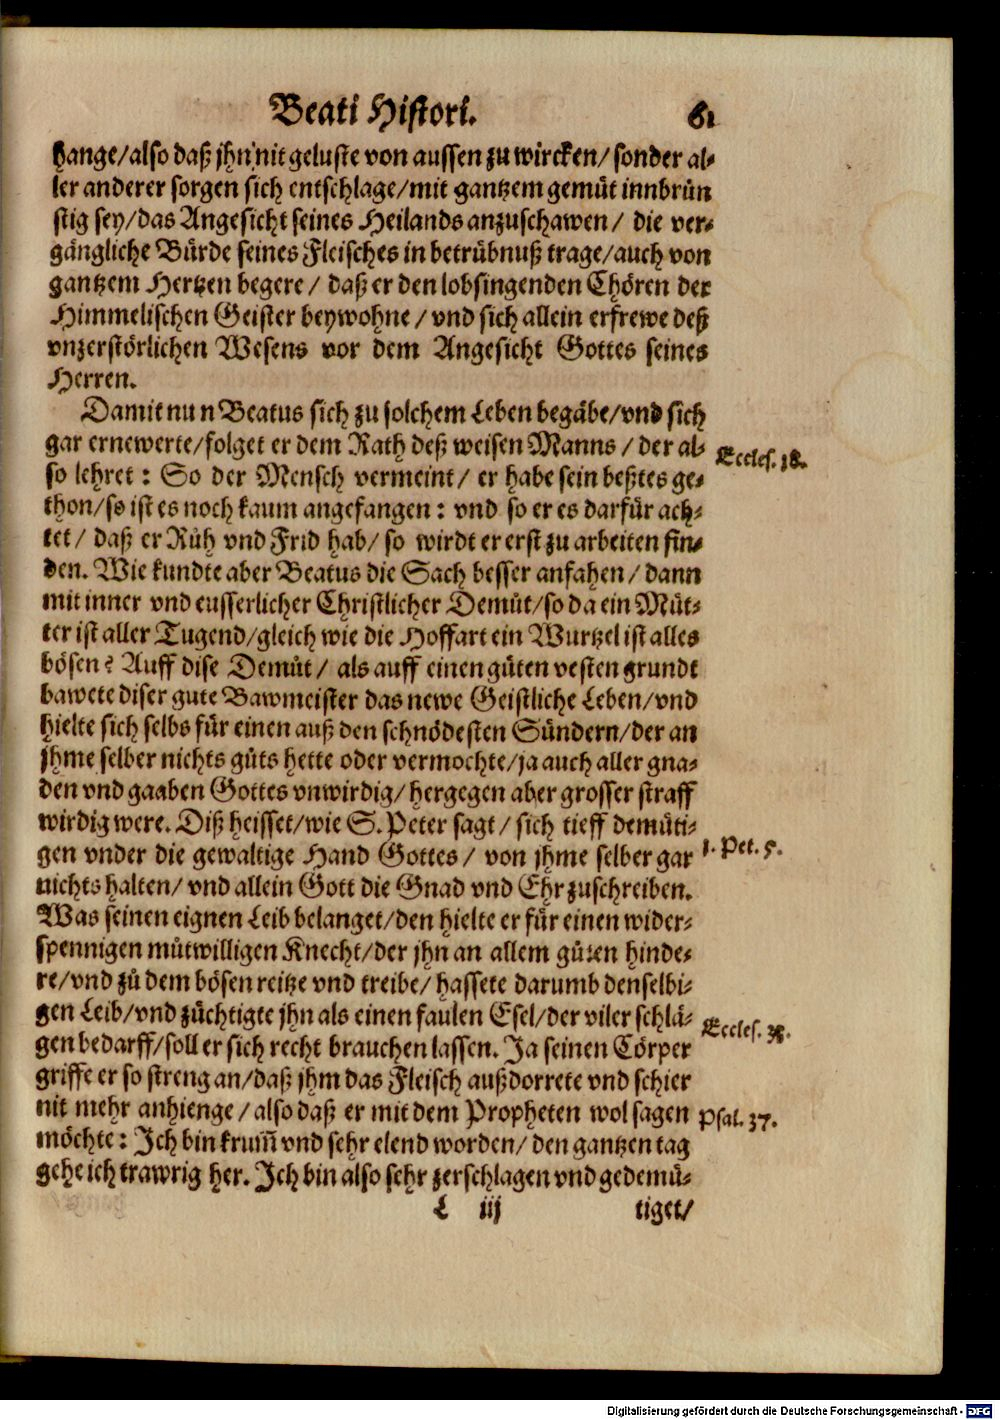 Beati Histori. 61
hange/also daß jhn nit geluste von aussen zu wircken/ sonder al-
ler anderer sorgen sich entschlage/mit gantzem gemüt innbrün
stig sey/das Angesicht seines Heilands anzuschawen/ die ver-
gängliche Bürde seines Fleisches in betrübnuß trage/auch von
gantzem Hertzen begere/ daß er den lobsingenden Chören der
Himmelischen Geister beywohne/vnd sich allein erfrewe deß
vnzerstörlichen Wesens vor dem Angesicht Gottes seines
Herren.
Damit nun Beatus sich zu solchem Leben begäbe/vnd sich
gar ernewerte/folget er dem Rath deß weisen Manns/ der al-
Eccles. 18.
so lehret: So der Mensch vermeint/ er habe sein beßtes ge-
thon/so ist es noch kaum angefangen: vnd so er es darfür ach-
tet/ daß er Rüh vnd Frid hab/ so wirdt er erst zu arbeiten fin-
den. Wie kundte aber Beatus die Sach besser anfahen/ dann
mit inner vnd eusserlicher Christlicher Demüt/so da ein Müt-
ter ist aller Tugend/gleich wie die Hoffart ein Wurtzel ist alles
bösen? Auff dise Demüt/ als auff einen güten vesten grundt
bawete diser gute Bawmeister das newe Geistliche Leben/vnd
hielte sich selbs für einen auß den schnödesten Sündern/der an
jhme selber nichts güts hette oder vermochte/ja auch aller gna-
den vnd gaaben Gottes vnwirdig/hergegen aber grosser straff
wirdig were. Diß heisset/wie S. Peter sagt/ sich tieff demüti-
gen vnder die gewaltige Hand Gottes/ von jhme selber gar
1. Pet. 5.
nichts halten/ vnd allein Gott die Gnad vnd Ehr zuschreiben.
Was seinen eignen Leib belanget/den hielte er für einen wider-
spennigen mütwilligen Knecht/der jhn an allem güten hinde-
re/vnd zü dem bösen reitze vnd treibe/ hassete darumb denselbi-
gen Leib/vnd züchtigte jhn als einen faulen Esel/der viler schlä-
Eccles. 38.
gen bedarff/soll er sich recht brauchen lassen. Ja seinen Cörper
griffe er so streng an/daß jhm das Fleisch außdorrete vnd schier
nit mehr anhienge/also daß er mit dem Propheten wol sagen
Psal. 37.
möchte: Jch bin krum̃ vnd sehr elend worden/ den gantzen tag
gehe ich trawrig her. Jch bin also sehr zerschlagen vnd gedemü-
L iij tiget/
Digitalisierung gefördert durch die Deutsche Forschungsgemeinschaft - DFG